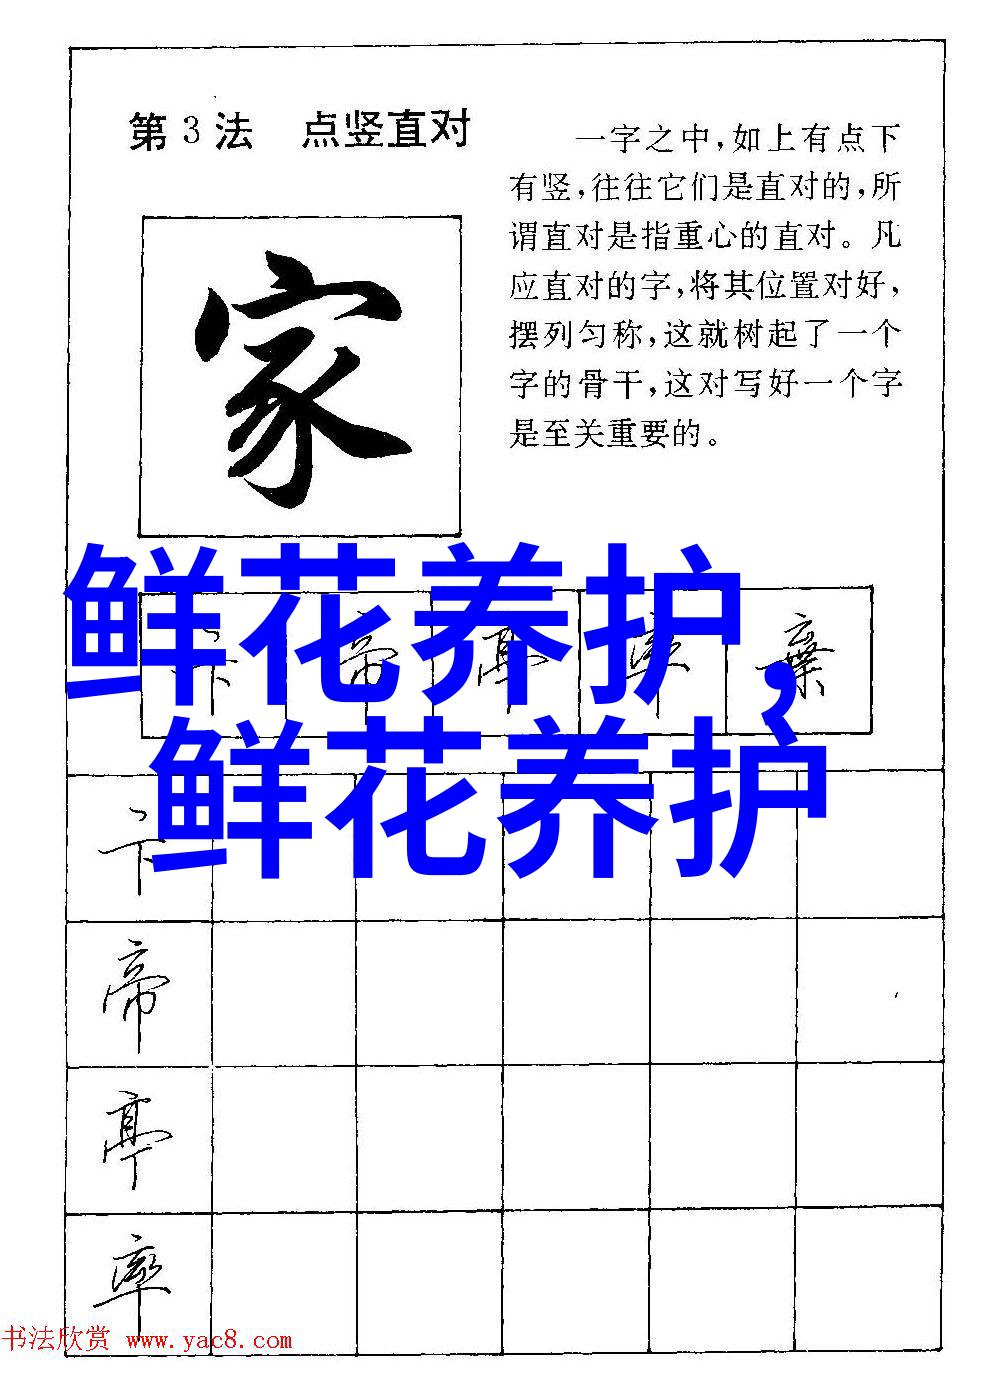 第3法 点竖直对
一字之中,如上有点下
有竖,往往它们是直对的,所
谓直对是指重心的直对。凡
应直对的字,将其位置对好,
摆列匀称,这就树起了一个
字的骨干,这对写好一个字
是至关重要的。
家
鲜花养护,
鲜花养护
卞 帝 亭 率 棄
卞
帝
亭
率
书法欣赏 www.yac8.com